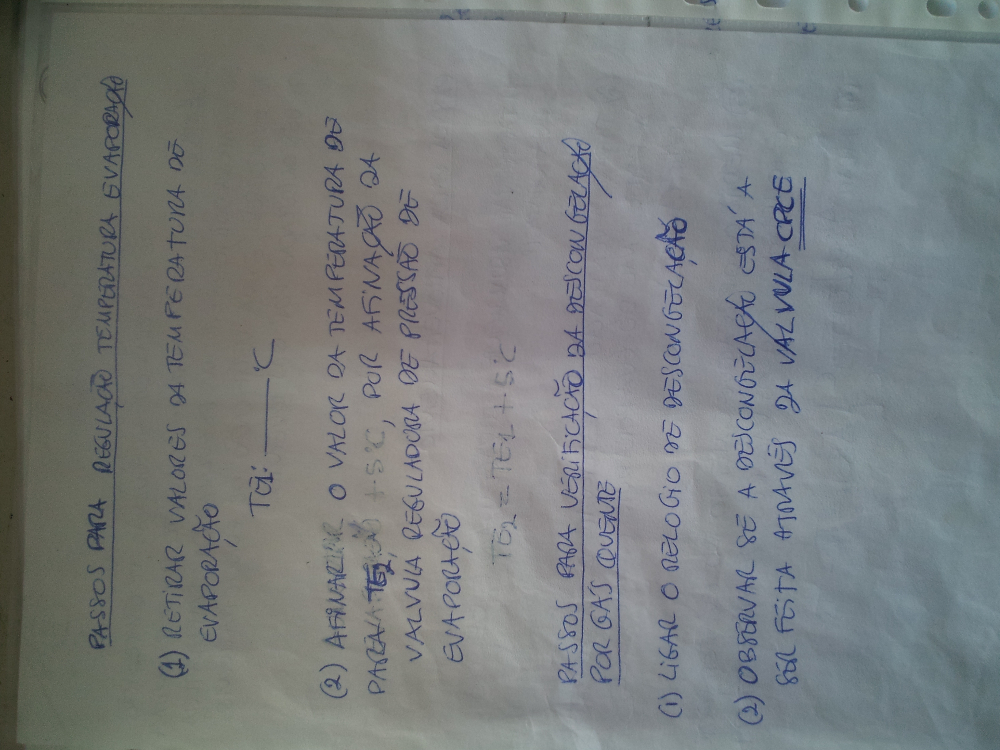 PASSOS PARA REGULAÇÃO TEMPERATURA EVAPORAÇÃO
(1) RETIRAR VALORES DA TEMPERATURA DE
EVAPORAÇÃO
TE1: ____ °C
(2) AFINAR O VALOR DA TEMPERATURA DE
PARA TE2 +5°C, POR AFINAÇÃO DA
VALVULA REGULADORA DE PRESSÃO DE
EVAPORAÇÃO
TE2 = TE1 + 5°C
PASSOS PARA VERIFICAÇÃO DA DESCONGELAÇÃO
POR GÁS QUENTE
(1) LIGAR O RELOGIO DE DESCONGELAÇÃO
(2) OBSERVAR SE A DESCONGELAÇÃO ESTÁ A
SER FEITA ATRAVÉS DA VALVULA CPCE